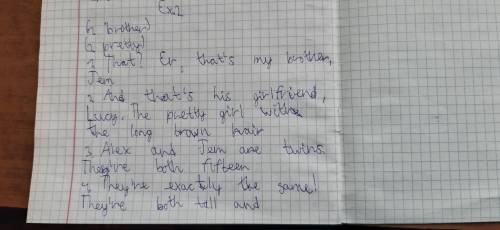 Ex2
(2 brother)
(2 pretty)
2 That? Er, that's my brother,
Jem
2 And that's his girlfriend,
Lucy. The pretty girl with
the long brown hair
3 Alex and Jem are twins.
They're both fifteen
4 They're exactly the same!
They're both tall and